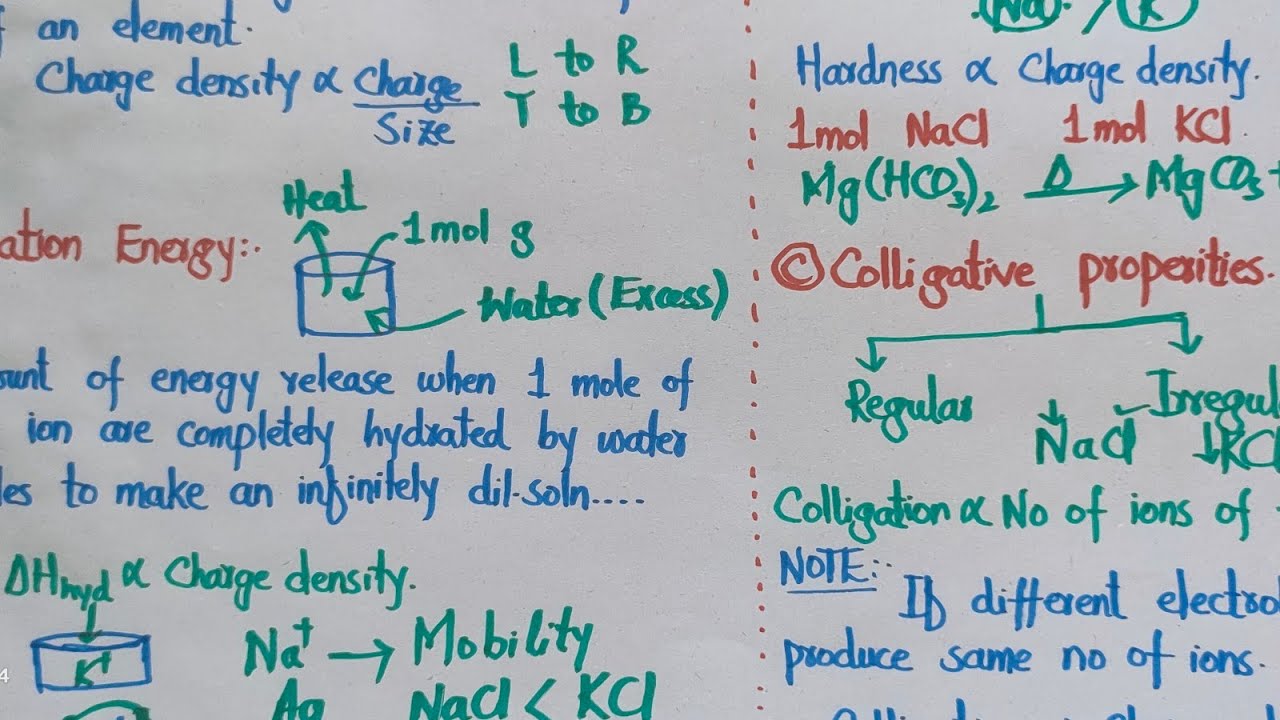 an element.
Charge density ∝ Charge
Size
L to R
T to B
Heat
1mol g
ation Energy:.
Water (Excess)
ount of energy release when 1 mole of
ion are completely hydrated by water
les to make an infinitely dil.soln....
ΔHhyd ∝ Charge density.
K+
Na+ → Mobility
Ag NaCl < KCl
(Na) > (K)
Hardness ∝ Charge density.
1mol NaCl 1mol KCl.
Mg(HCO3)2 Δ→ MgCO3 +
© Colligative properities.
Regular
Irregul
↓ ✓
NaCl ↓KCl
Colligation ∝ No of ions of
NOTE:. If different electro
produce same no of ions.
4